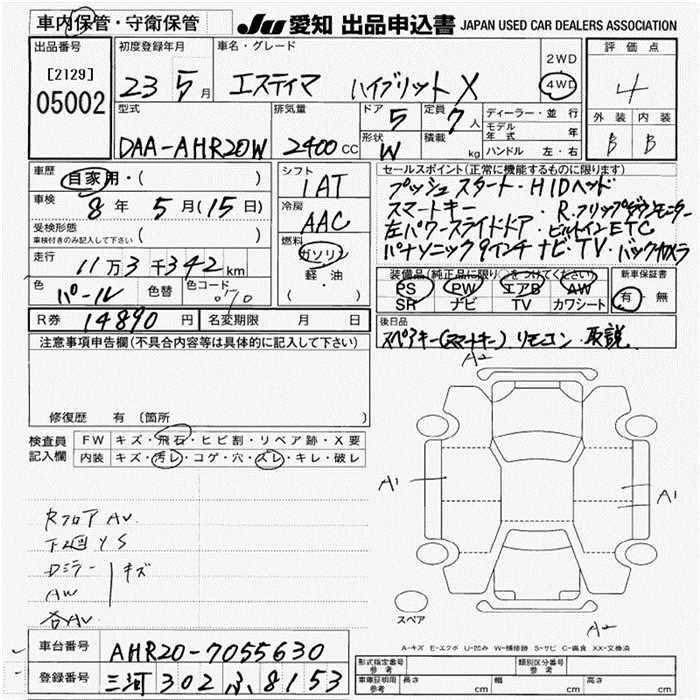 車内保管・守衛保管
JU 愛知 出品申込書 JAPAN USED CAR DEALERS ASSOCIATION
出品番号
[2129]
05002
初度登録年月
23 5月
車名・グレード
エスティマ ハイブリットX
2WD
4WD
評価点
4
外装 内装
B B
型式
DAA-AHR20W
排気量
2400 CC
ドア 5
定員 7人
形状 W
積載 kg
ディーラー・並行
モデル年式 年
ハンドル 左・右
車歴
自家用・( )
車検
8年 5月(15日)
受検形態
車検付きのみ記入して下さい ( )
走行
11万3千342km
色 パール
色替
色コード 070
シフト
IAT
冷房
AAC
燃料
ガソリン
軽・油
( ・ )
セールスポイント(正常に機能するものに限ります)
プッシュスタート・HIDヘッド
スマートキー ・R.フリップダウンモニター
左パワースライドドア・ビルトインETC
パナソニック9インチナビ・TV・バックカメラ
装備品(純正品に限り○をつけてください)
PS PW エアB AW
SR ナビ TV カワシート
新車保証書
有・無
R券 14890円
名変期限 月 日
後日品
スペアキー(スマートキー) リモコン 取説
注意事項申告欄(不具合内容等は具体的に記入して下さい)
修復歴 有 〔箇所
検査員記入欄
FW キズ・飛石・ヒビ割・リペア跡・X要
内装 キズ・汚レ・コゲ・穴・スレ・キレ・破レ
RフロアAU
下廻YS
Dミラー キズ
AW
各AU
A2
A1
A1
A2
スペア
A-キズ E-エクボ U-凹み W-補修跡 S-サビ C-腐食 XX-交換済
車台番号
AHR20-7055630
登録番号
三河302ふ8153
形式指定番号 参考
類別区分番号 参考
車庫証明用 参考
長さ cm 幅 cm 高さ cm